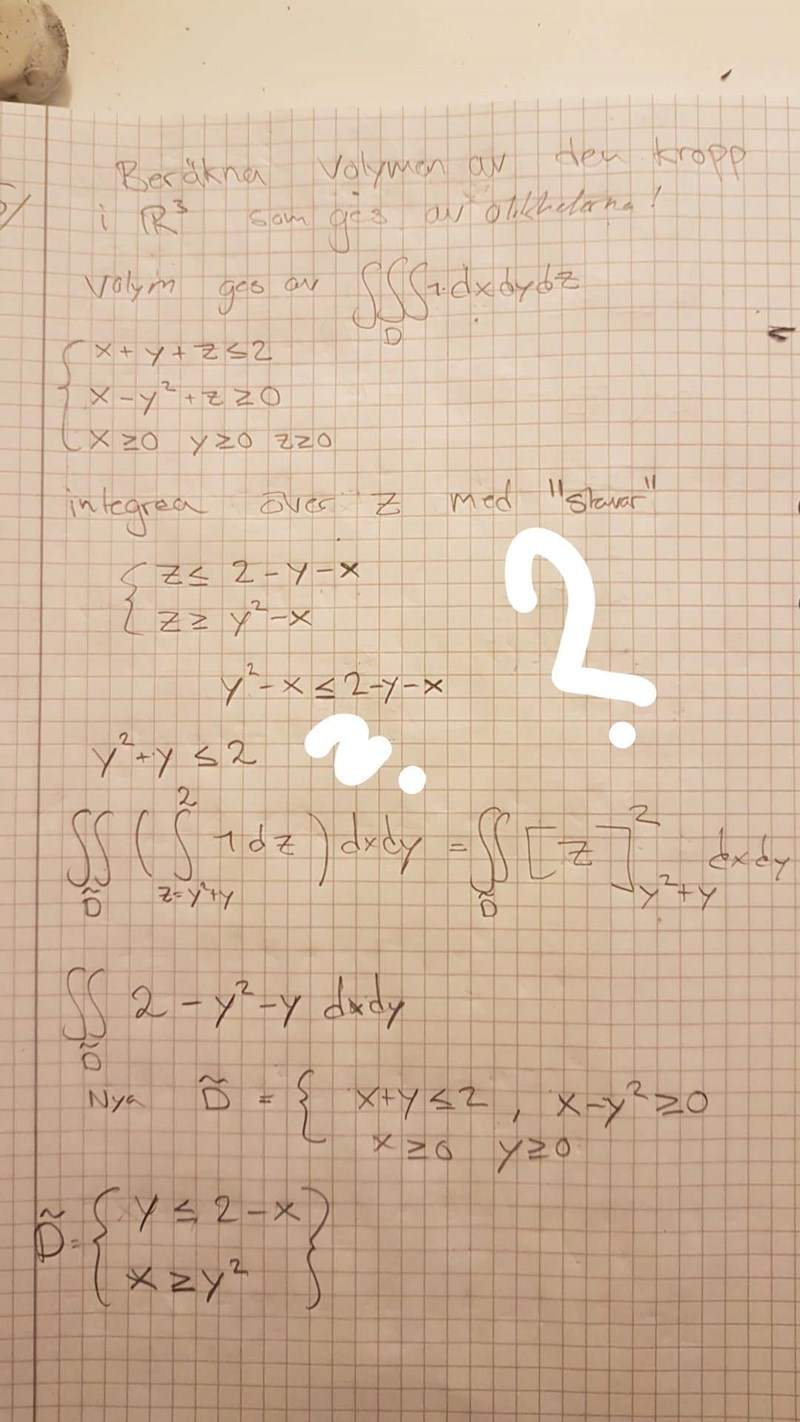 Beräkna volymen av den kropp
i ℝ³ som ges av olikheterna!
Volym ges av ∭_D 1·dxdydz
{ x + y + z ≤ 2
x - y² + z ≥ 0
x ≥ 0 y ≥ 0 z ≥ 0
integrea över z med "stavar"
{ z ≤ 2 - y - x
z ≥ y² - x
y² - x ≤ 2 - y - x
?
y² + y ≤ 2
∬_D̃ ( ∫_{z=y²+y}^{2} 1 dz ) dxdy = ∬_D̃ [ z ]_{y²+y}^{2} dxdy
∬_D̃ 2 - y² - y dxdy
Nya D̃ = { x + y ≤ 2 , x - y² ≥ 0
x ≥ 0 y ≥ 0
D̃ = { y ≤ 2 - x }
x ≥ y²